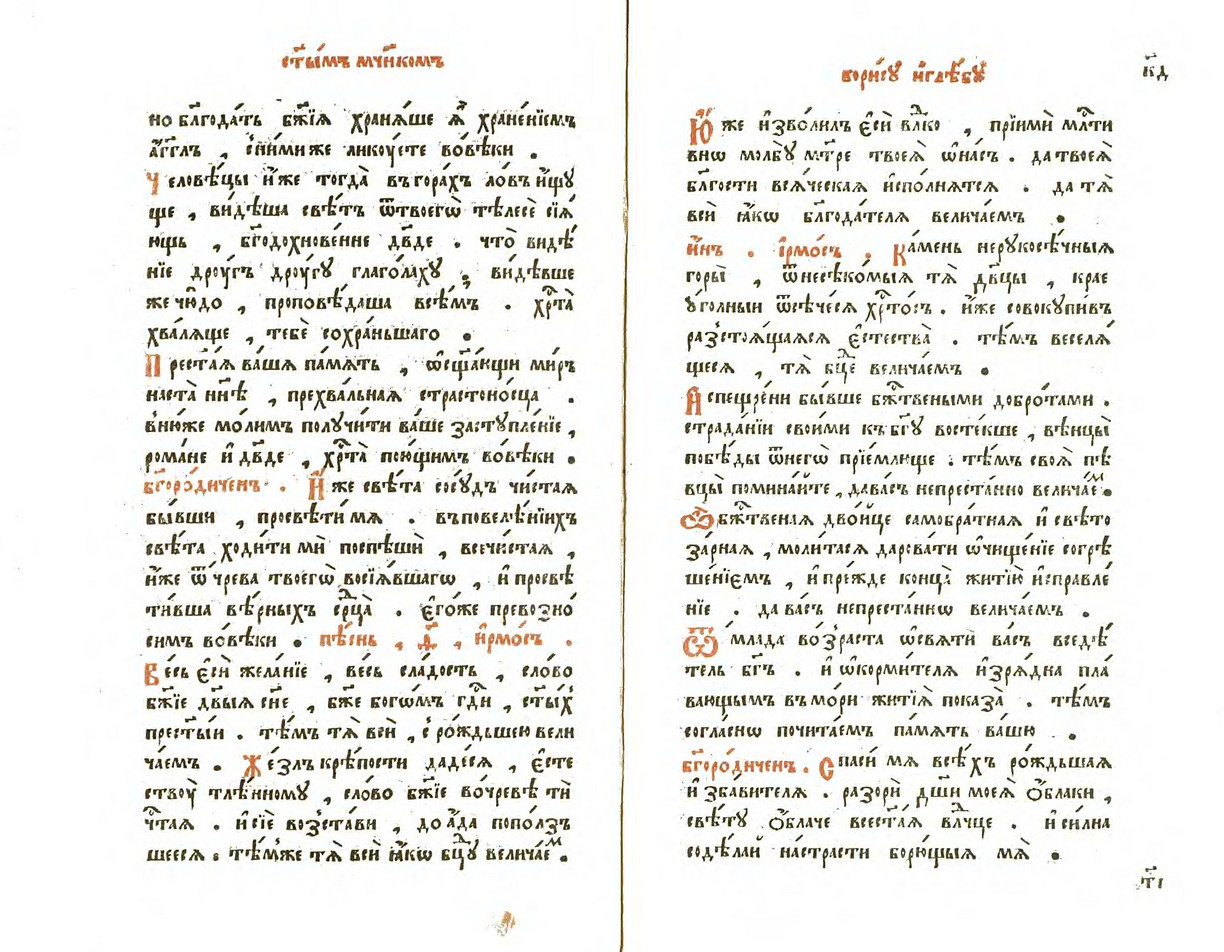 ст҃ы́мъ мч҃нкомъ
но бл҃года́ть бж҃їѧ храня́ше ѧ҆̀ хране́нїемъ
а҆́гг҃лъ , сни́ми же лику́ете во́вѣки .
Человѣ́цы и҆́же тогда̀ въ гора́хъ ло́въ и҆́щꙋ
ще , ви́дѣша свѣ́тъ ѿ твоегѡ̀ тѣ́лесѐ сїѧ́
ющь , бг҃одохнове́нне дв҃де . что̀ видѣ́
нїе дрꙋ́гъ дрꙋ́гꙋ глаго́лахꙋ ; ви́дѣвше
же чю́до , проповѣ́даша всѣ́мъ . хрⷭ҇та̀
хва́лѧще , тебѐ сохра́ньшаго .
Прест҃а́ѧ ва́ша па́мѧть , ѡ҆сщ҃а́ющи ми́ръ
наста̀ нн҃ѣ , прехва́льнаѧ страстоно́сца .
в ню́же мо́лимъ полꙋчи́ти ва́ше застꙋпле́нїе ,
рома́не и҆ дв҃де , хрⷭ҇та̀ пою́щимъ во́вѣки .
бг҃оро́диченъ . И҆́же свѣ́та сосꙋ́дъ чи́стаѧ
бы́вши , просвѣти́ мѧ . въ повелѣ́нїихъ
свѣ́та ходи́ти ми̑ поспѣшѝ , всечи́стаѧ ,
и҆́же ѿ чре́ва твоегѡ̀ восїѧ́вшагѡ , и҆ просвѣ
ти́вша вѣ́рныхъ срⷣца̀ . є҆го́же превозно́
симъ во́вѣки . пѣ́снь , ѳ҃ , і҆рмо́съ .
Ве́сь є҆сѝ жела́нїе , ве́сь сла́дость , сло́во
бж҃їе дв҃ыѧ сн҃е , бж҃е богѡ́мъ гдⷭ҇и , ст҃ы́хъ
прест҃ы́и . тѣ́мъ тѧ̀ всѝ , с ро́ждьшею вели
ча́емъ . Же́злъ крѣ́пости даде́сѧ , є҆сте
ствꙋ̀ тлѣ́нномꙋ , сло́во бж҃їе во чре́вѣ ти̑
чⷭ҇таѧ . и҆ сїѐ возста́ви , до а҆́да попо́лзъ
шеесѧ . тѣ́мже тѧ̀ всѝ ꙗ҆́кѡ бцⷣꙋ велича́еⷨ .
бори́сꙋ и҆ глѣ́бꙋ
к҃д
Ю҆́же и҆зво́лилъ є҆сѝ влⷣко , прїимѝ млⷭ҇ти
внѡ молбꙋ̀ мт҃ре твоеѧ̀ ѡ҆ на́съ . да твоеѧ̀
бл҃гости всѧ́ческаѧ и҆спо́лнѧтсѧ . да тѧ̀
всѝ ꙗ҆́кѡ бл҃года́телѧ велича́емъ .
и҆́нъ . і҆рмо́съ . Ка́мень нерꙋкосѣ́чныѧ
горы̀ , ѿ несѣко́мыѧ тѧ̀ дв҃цы , крае
ꙋ҆го́лныи ѿсѣче́сѧ хрⷭ҇то́съ . и҆́же совокꙋпи́въ
разстоѧ́щаѧсѧ є҆стества̀ . тѣ́мъ веселѧ́
щесѧ , тѧ̀ бцⷣе велича́емъ .
А҆спещре́ни бы́вше бж҃твеными добро́тами .
страда́нїи свои́ми къ бг҃ꙋ восте́кше , вѣнцы̀
побѣ́ды ѿ негѡ̀ прїе́млюще . тѣ́мъ своѧ̀ пѣ
вцы̀ помина́йте , да ва́съ непреста́нно велича́еⷨ .
Ѽ бж҃твенаѧ дво́ице самобра́тнаѧ и҆ свѣто
за́рнаѧ , моли́тасѧ дарова́ти ѡ҆чище́нїе согрѣ
ше́нїемъ , и҆ пре́жде конца̀ житїю̀ и҆справле́
нїе . да ва́съ непреста́ннѡ велича́емъ .
Ѿ мла́да во́зраста ѡ҆свѧтѝ ва́съ вседѣ́
тель бг҃ъ . и҆ ѡ҆корми́телѧ и҆зрѧ́дна пла́
вающымъ въ мо́ри житїѧ̀ показа̀ . тѣ́мъ
согла́снѡ почита́емъ па́мѧть ва́шю .
бг҃оро́диченъ . Спасѝ мѧ всѣ́хъ ро́ждьшаѧ
и҆зба́вителѧ . разорѝ дш҃и моеѧ̀ ѻ҆́блаки ,
свѣ́тꙋ ѻ҆́блаче всест҃а́ѧ влⷣчце . и҆ си́лна
содѣ́лай на стра́сти борю́щыѧ мѧ̀ .
т҃і